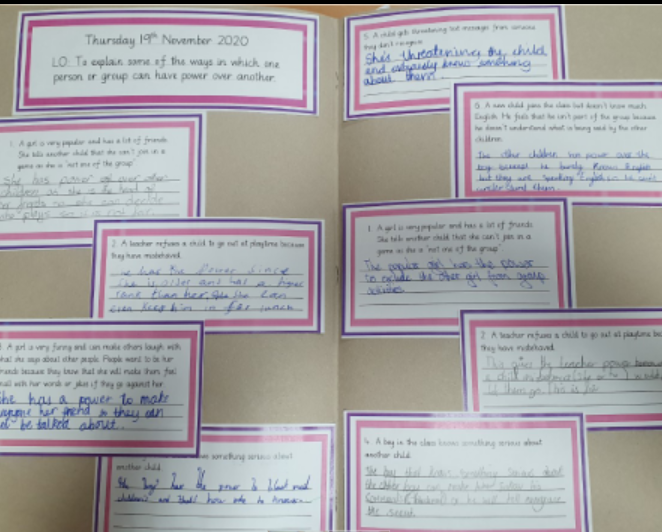 Thursday 19th November 2020
LO: To explain some of the ways in which one
person or group can have power over another.
1. A girl is very popular and has a lot of friends.
She tells another child that she can't join in a
game as she is 'not one of the group'
She has power over other
children as she is the head of
her so she can decide
she plays so is not her
2. A teacher refuses a child to go out at playtime because
they have misbehaved.
has the Power Since
She is older and has a higer
than her, She Even
even keep him in for lunch
A girl is very funny and can make others laugh with
what she says about other people. People want to be her
friends because they know that she will make them feel
small with her words or jokes if they go against her.
She has a power to make
anyone her friend so they can
not be talked about.
knows something serious about
another child.
the boy has the power to black mail
5. A child gets threatening text messages from someone
they don't recognise.
She's threatening the child
and knows something
about them.
6. A new child joins the class but doesn't know much
English. He feels that he isn't part of the group because
he doesn't understand what is being said by the other
children.
The other children has power over the
boy because he barely Knows English
but they are speaking English so he cant
understand them.
1. A girl is very popular and has a lot of friends.
She tells another child that she can't join in a
game as she is 'not one of the group'
The popular girl has the power
to exclude the other girl from group
activities
2. A teacher refuses a child to go out at playtime be
they have misbehaved.
This gives the teacher power because
a child
let them go. This is
4. A boy in the class knows something serious about
another child.
The boy that knows something serious about
the other boy can make him
(blackmail) or he will tell everyone
the secret.